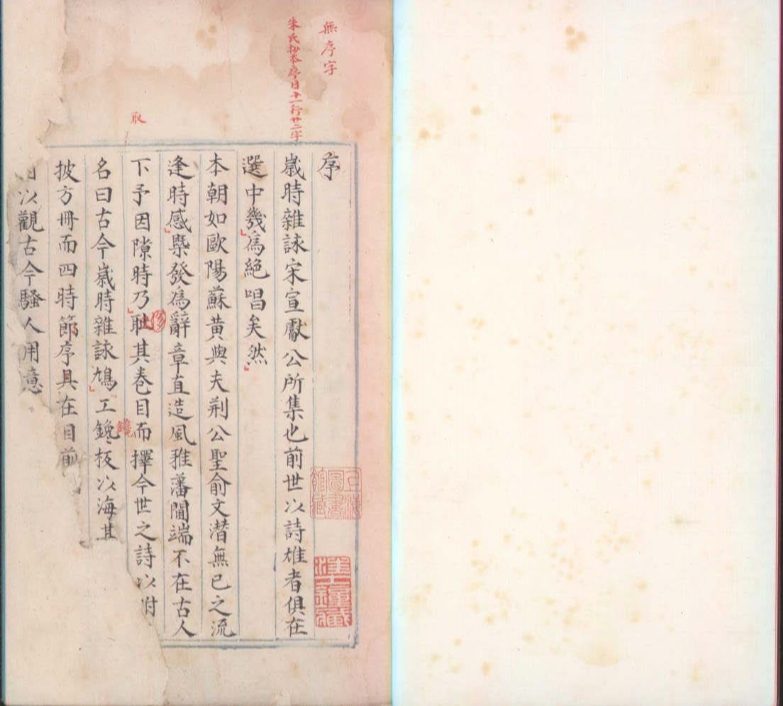 無序字
朱氏抄本序目十一行廿二字
取
序
歲時雜詠宋宣獻公所集也前世以詩雄者俱在
選中幾爲絕唱矣然
本朝如歐陽蘇黃與夫荆公聖俞文潛無已之流
逢時感槩發爲辭章直造風雅藩閫端不在古人
下予因隙時乃耿其卷目而擇今世之詩以附
名曰古今歲時雜詠鳩工鑱板以海其
披方冊而四時節序具在目前
以觀古今騷人用意